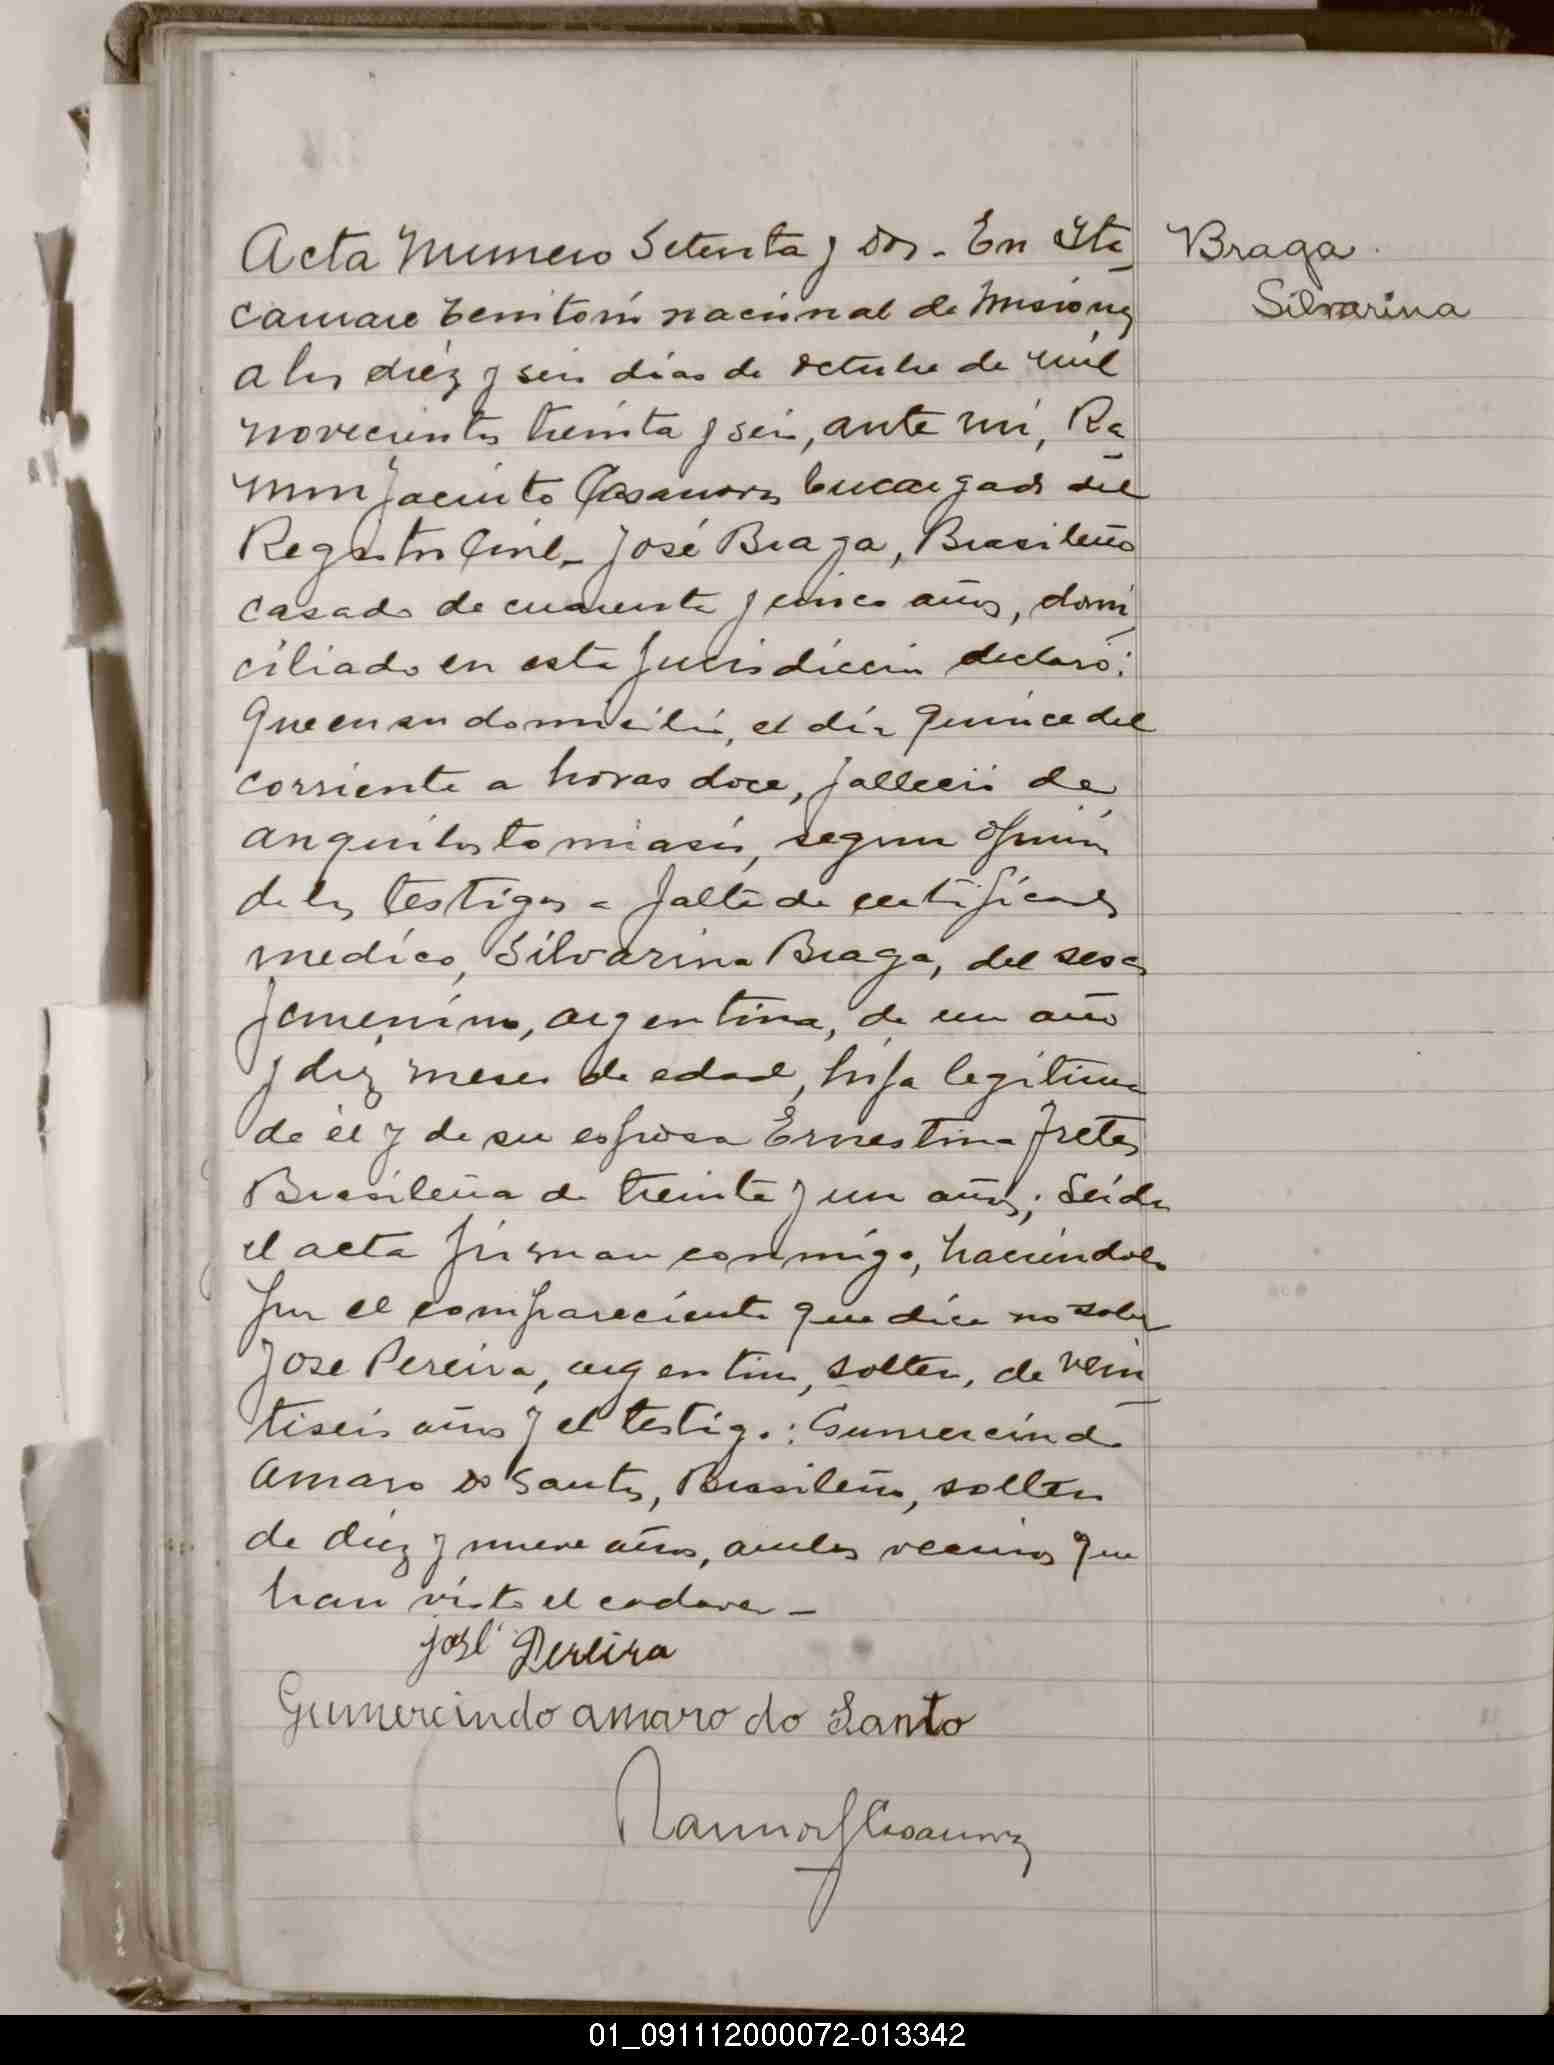 Acta Numero Setenta y Dos. - En Ita
Braga
caruare territorio nacional de Misiones
Silvarina
a los diéz y seis días de octubre de mil
novecientos treinta y seis, ante mi, Ra
mon Jacinto Casanova Encargado del
Registro Civil - José Braga, Brasileño
casado de cuarenta y cinco años, domi
ciliado en esta jurisdiccion declaró:
Que en su domicilio, el día quince del
corriente a horas doce, falleció de
anquilostomiasis, segun opinion
de los testigos a falta de certificado
medico, Silvarina Braga, del sexo
femenino, argentina, de un año
y diez meses de edad, hija legitima
de él y de su esposa Ernestina Fretes
Brasileña de treinta y un años; Leida
el acta firman conmigo, haciendolo
por el compareciente que dice no saber
Jose Pereira, argentino, soltero, de vein
tiseis años y el testigo: Gumercindo
Amaro do Santos, Brasileño, soltero
de diez y nueve años, ambos vecinos que
han visto el cadaver -
José Pereira
Gumercindo amaro do Santo
Ramon J Casanova
01_091112000072-013342